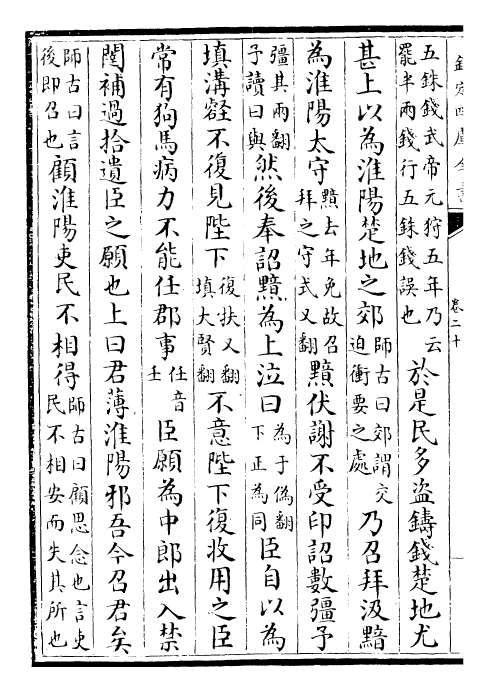 欽定四庫全書
卷二十
五銖錢武帝元狩五年乃云罷半兩錢行五銖錢誤也於是民多盜鑄錢楚地尤
甚上以為淮陽楚地之郊師古曰郊謂交迫衝要之處乃召拜汲黯
為淮陽太守黯去年免故召拜之守式又翻黯伏謝不受印詔數彊予
彊其兩翻予讀曰與然後奉詔黯為上泣曰為于偽翻下正為同臣自以為
填溝壑不復見陛下復扶又翻填大賢翻不意陛下復收用之臣
常有狗馬病力不能任郡事任音壬臣願為中郎出入禁
闥補過拾遺臣之願也上曰君薄淮陽邪吾今召君矣
師古曰言後即召也顧淮陽吏民不相得師古曰顧思念也言吏民不相安而失其所也